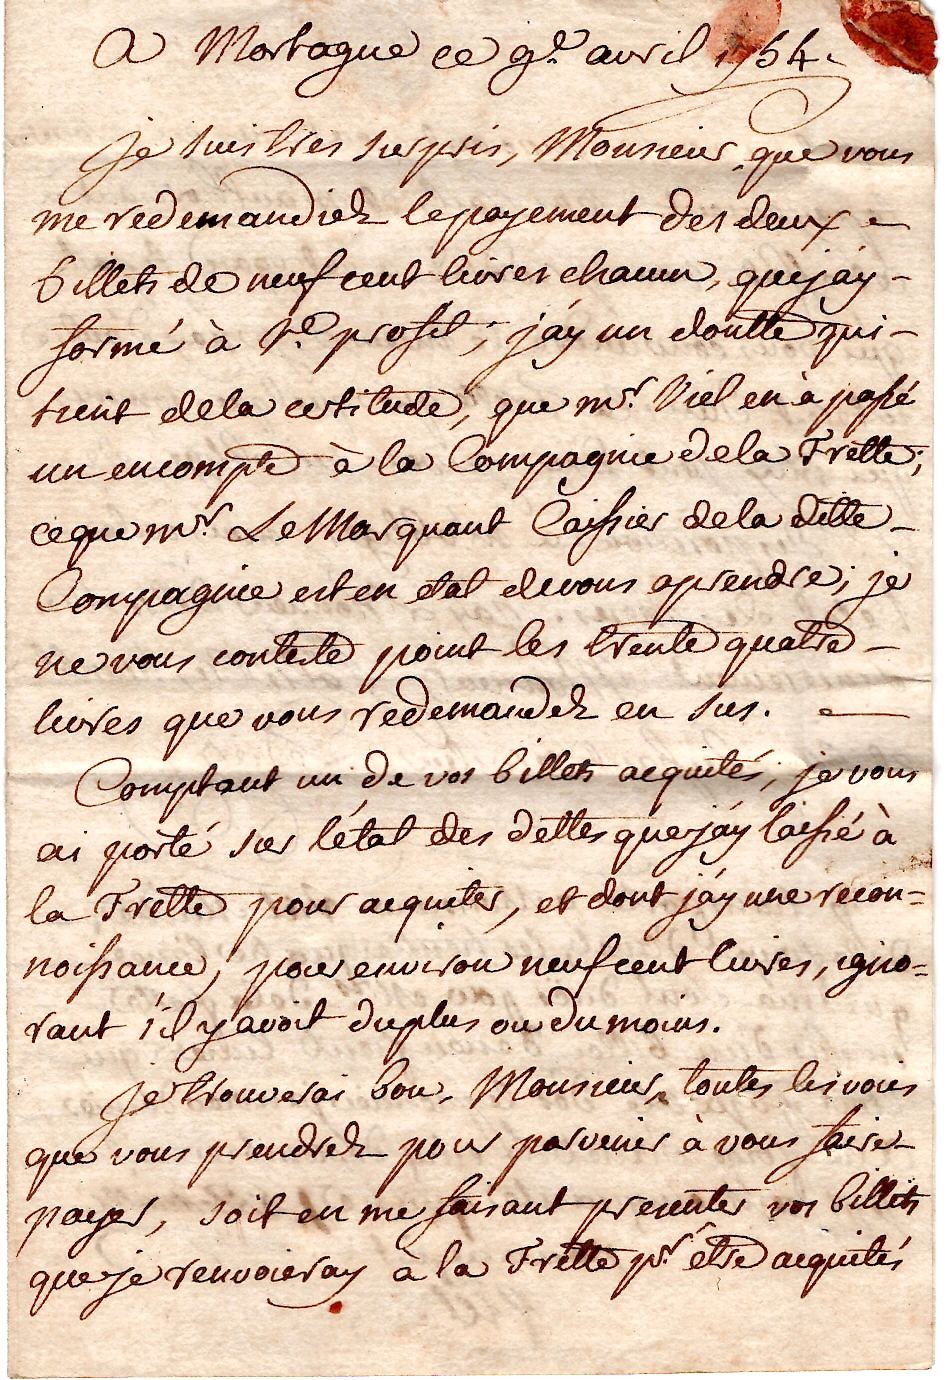 A Mortagne ce 9e. avril 1754.
Je suis tres surpris, Monsieur, que vous
me redemandiez le payement des deux
billets de neuf cent livres chacun, que j'ay
formé à Ve. profit; j'ay un doutte qui
tient de la certitude, que mr. Viel en à passé
un en compte à la Compagnie de la Frette;
ce que mr. Le Marquant Caissier de la ditte
Compagnie est en état de vous aprendre; je
ne vous conteste point les trente quatre
livres que vous redemandez en sus.
Comptant un de vos billets acquités, je vous
ai porté sur l'état des dettes que j'ay laissé à
la Frette pour acquiter, et dont j'ay une recon=
noissance, pour environ neuf cent livres, igno=
rant s'il y avoit du plus ou du moins.
Je trouverai bon, Monsieur, toutes les voies
que vous prendrez pour parvenir à vous faire
payer, soit en me faisant presenter vos billets
que je renvoieray à la Frette pr. être acquités